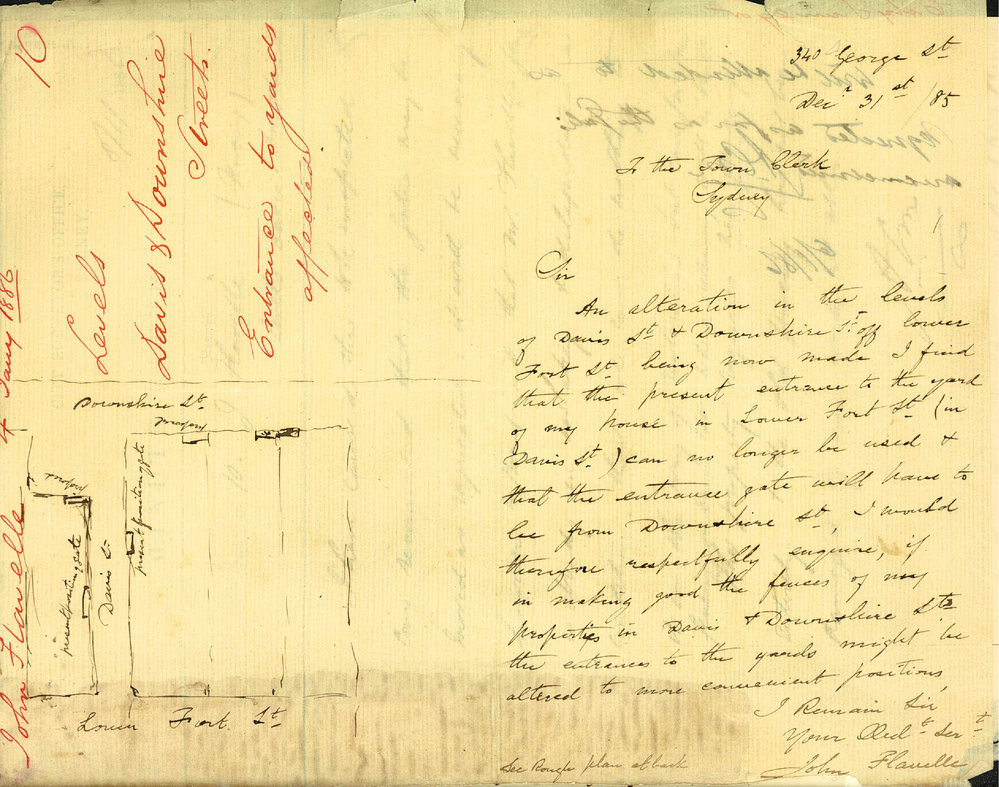 10
4 Jany 1886
John Flavelle
Levels
Davis & Downshire
Streets.
Entrance to yards
affected
Downshire St.
proposed
proposed
present position gate
present position gate
Davis St
Lower Fort St
340 George St
Decr 31st /85
To the Town Clerk
Sydney
Sir
An alteration in the levels
of Davis St & Downshire St off lower
Fort St being now made I find
that the present entrance to the yard
of my house in Lower Fort St (in
Davis St) can no longer be used &
that the entrance gate will have to
be from Downshire St, I would
therefore respectfully enquire, if
in making good the fences of my
properties in Davis & Downshire Sts
the entrances to the yards might be
altered to more convenient positions,
I Remain Sir
Your Obdt Servt
John Flavelle
See Rough plan at back